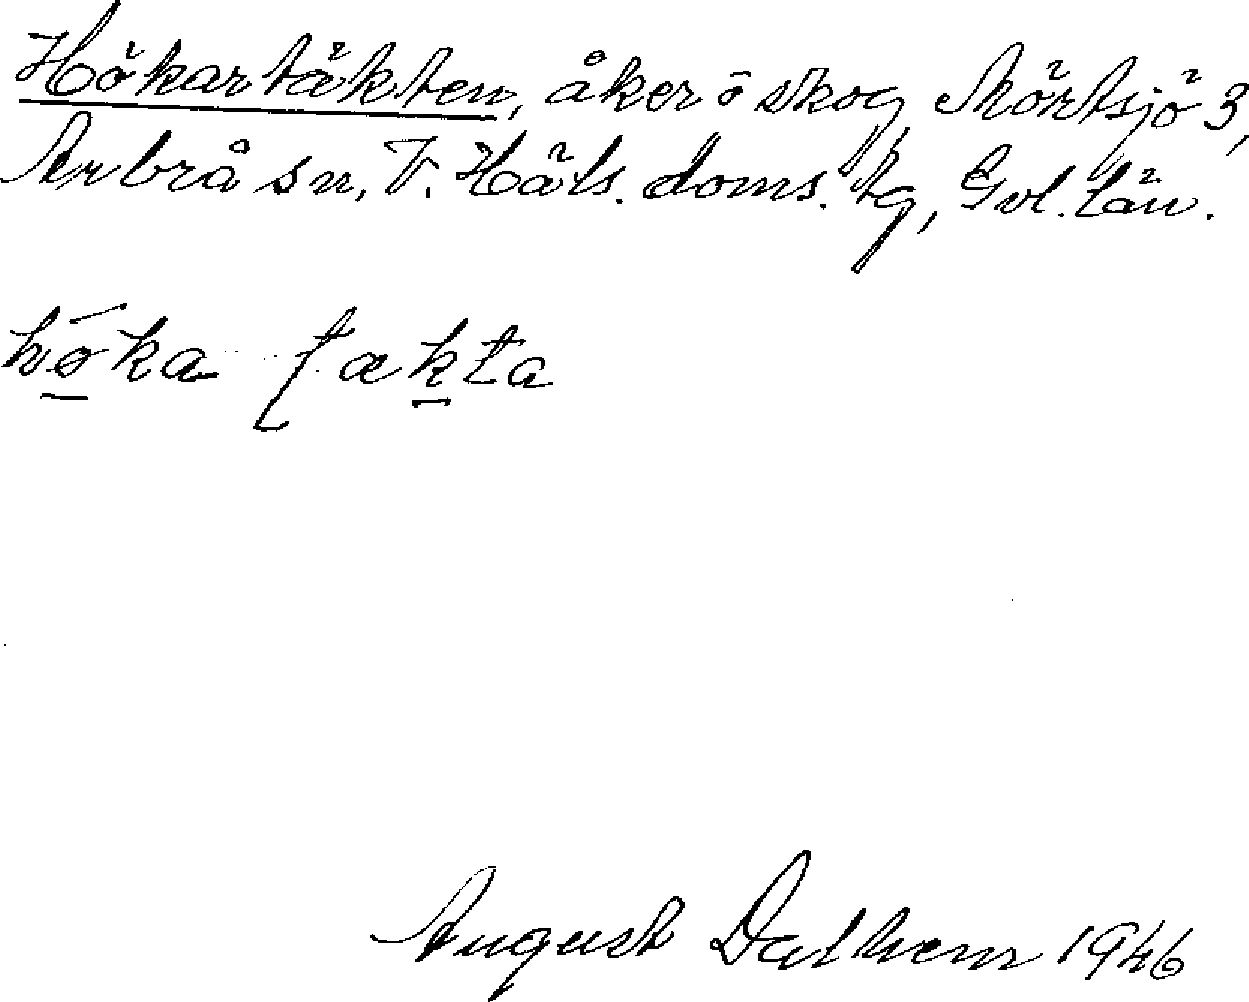 Hökartäkten, åker o skog, Mörtsjö 3,
Arbrå sn, V. Häls. doms. tg, Gvl. län.
hö́ka tækta
August Dalhem 1946